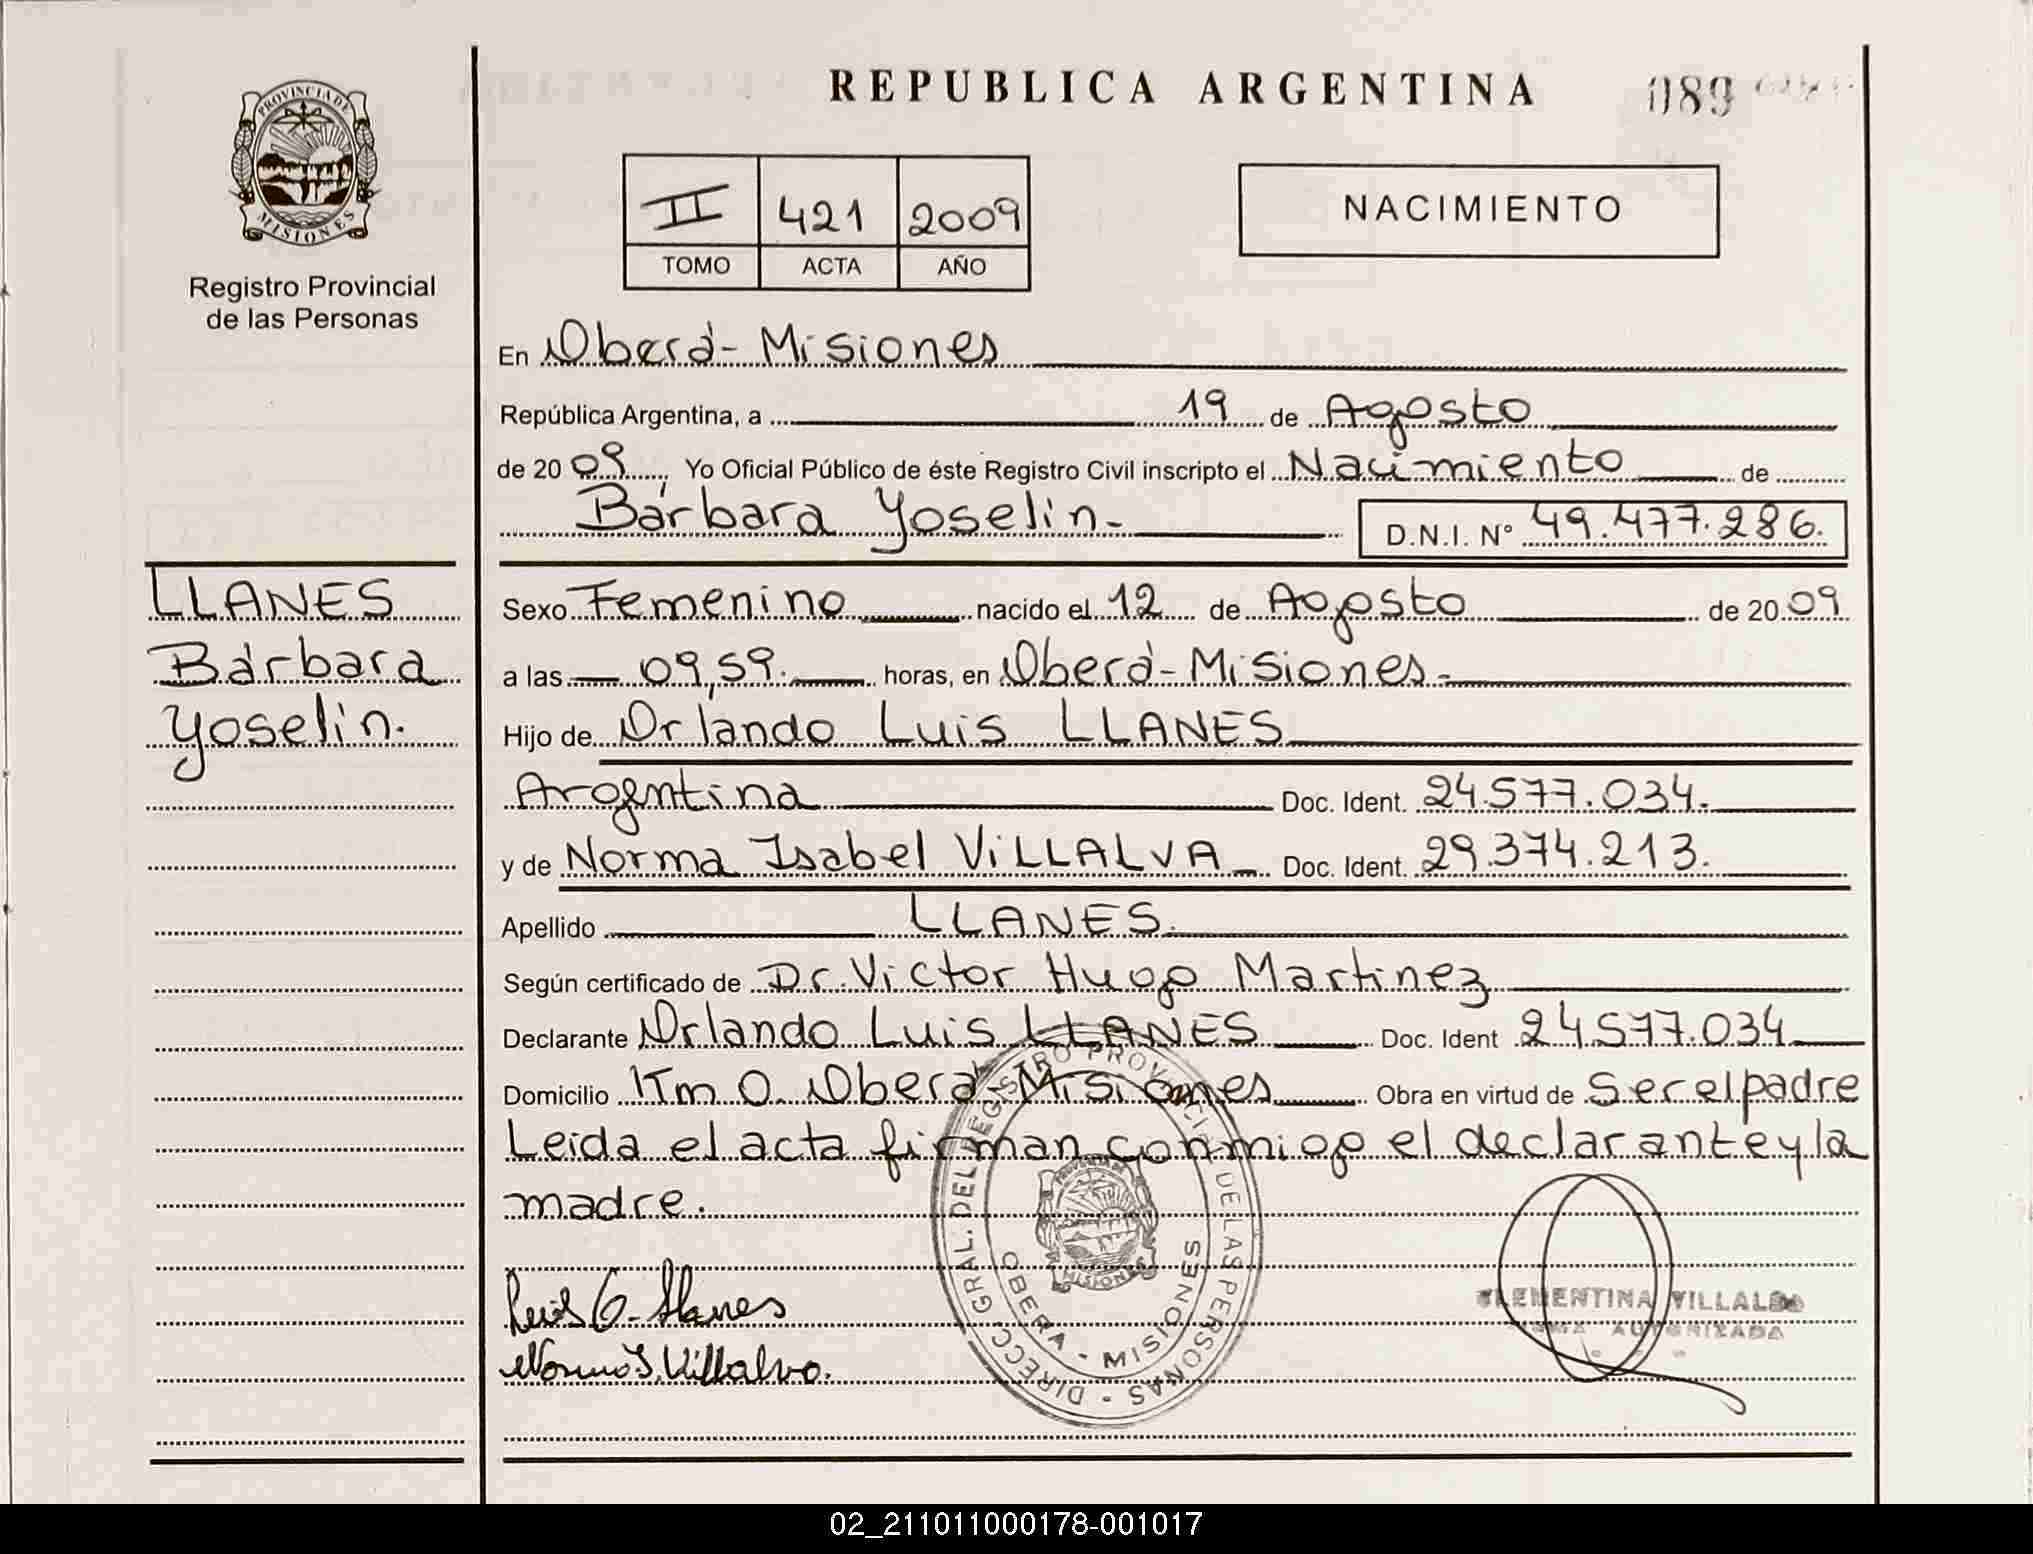 REPUBLICA ARGENTINA
089
PROVINCIA DE
MISIONES
Registro Provincial
de las Personas
II 421 2009
TOMO ACTA AÑO
NACIMIENTO
En Oberá - Misiones
República Argentina, a 19 de Agosto
de 20 09, Yo Oficial Público de éste Registro Civil inscripto el Nacimiento de
Bárbara Yoselin.- D.N.I. N° 49.477.286.
LLANES
Bárbara
Yoselin.
Sexo Femenino nacido el 12 de Agosto de 20 09
a las 09,59. horas, en Oberá - Misiones.-
Hijo de Orlando Luis LLANES
Argentina Doc. Ident. 24.577.034.
y de Norma Isabel ViLLALVA Doc. Ident. 29.374.213.
Apellido LLANES.
Según certificado de Dr. Victor Hugo Martinez
Declarante Orlando Luis LLANES Doc. Ident 24.577.034
Domicilio Km 0. Oberá Misiones Obra en virtud de Ser el padre
Leida el acta firman conmigo el declarante y la
madre.
DIRECC. GRAL. DEL REGISTRO PROVINCIAL DE LAS PERSONAS
PROVINCIA DE
MISIONES
OBERA - MISIONES
Luis O. Llanes
Norma I. Villalva.
CLEMENTINA VILLALBA
FIRMA AUTORIZADA
02_211011000178-001017